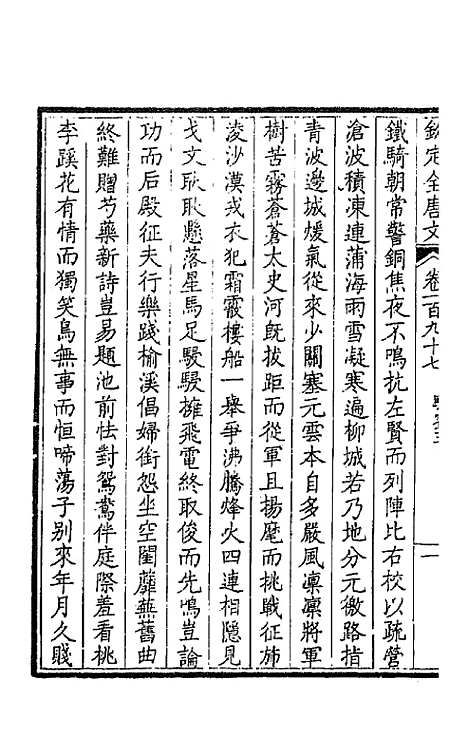 欽定全唐文 卷一百九十七 駱賓王 一
鐵騎朝常警銅焦夜不鳴抗左賢而列陣比右校以疏營
滄波積凍連蒲海雨雪凝寒遍柳城若乃地分元徼路指
青波邊城煖氣從來少關塞元雲本自多嚴風凛凛將軍
樹苦霧蒼蒼太史河旣拔距而從軍且揚麾而挑戰征斾
淩沙漠戎衣犯霜霰樓船一舉爭沸騰烽火四連相隱見
戈文耿耿懸落星馬足駸駸擁飛電終取俊而先鳴豈論
功而后殿征夫行樂踐榆溪倡婦銜怨坐空閨蘼蕪舊曲
終難贈芍藥新詩豈易題池前怯對鴛鴦伴庭際羞看桃
李蹊花有情而獨笑鳥無事而恒啼蕩子別來年月久賤